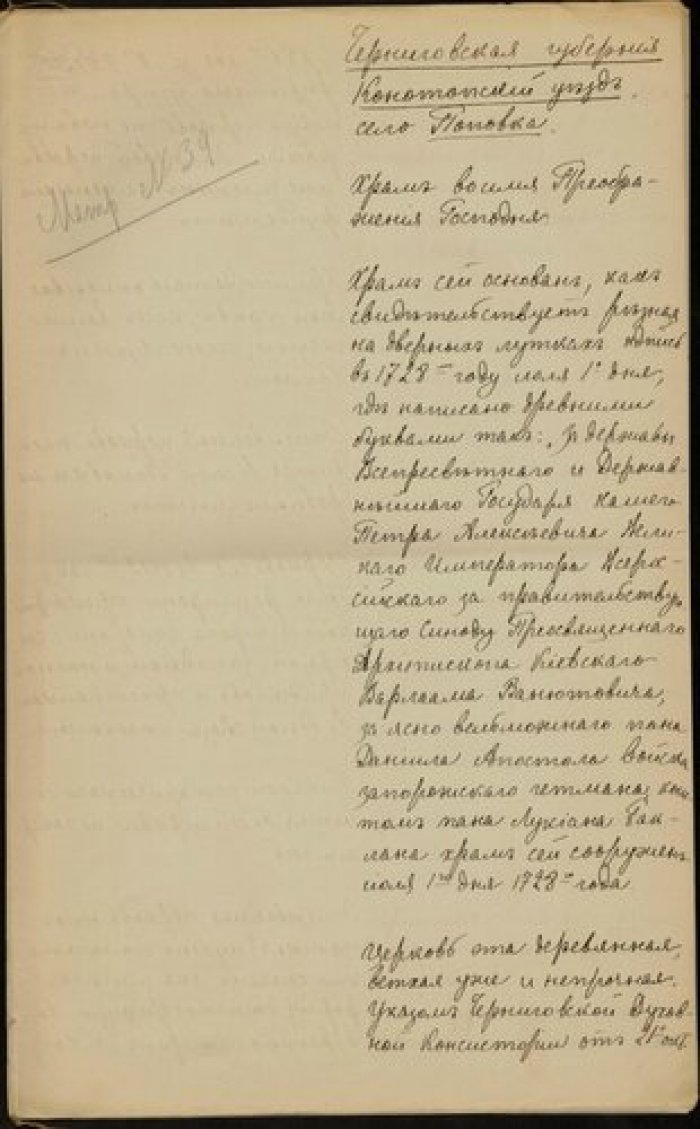 Черниговская губернія
Конотопскій уѣздъ.
село Поповка.
Метр № 39
Храмъ во имя Преобра-
женія Господня.
Храмъ сей основанъ, какъ
свидѣтельствуетъ рѣзная
на дверныхъ луткахъ
въ 1728 году іюля 1 дня,
гдѣ написано древними
буквами такъ: За державы
Всепресвѣтнаго и Держав-
нѣйшаго Государя нашего
Петра Алексѣевича Вели-
каго Императора Всерос-
сійскаго за правительствую
щаго Синоду Преосвященнаго
Архіепископа Кіевскаго
Варлаама Ванютовича,
за ясно вельможнаго пана
Даніила Апостола Войска
запорожскаго гетмана,
томъ пана Лукіана Жак-
лана храмъ сей сооруженъ
іюля 1го дня 1728 года
Церковь эта деревянная,
ветхая уже и непрочная.
Указомъ Черниговской Духов-
ной Консисторіи отъ 21 окт.